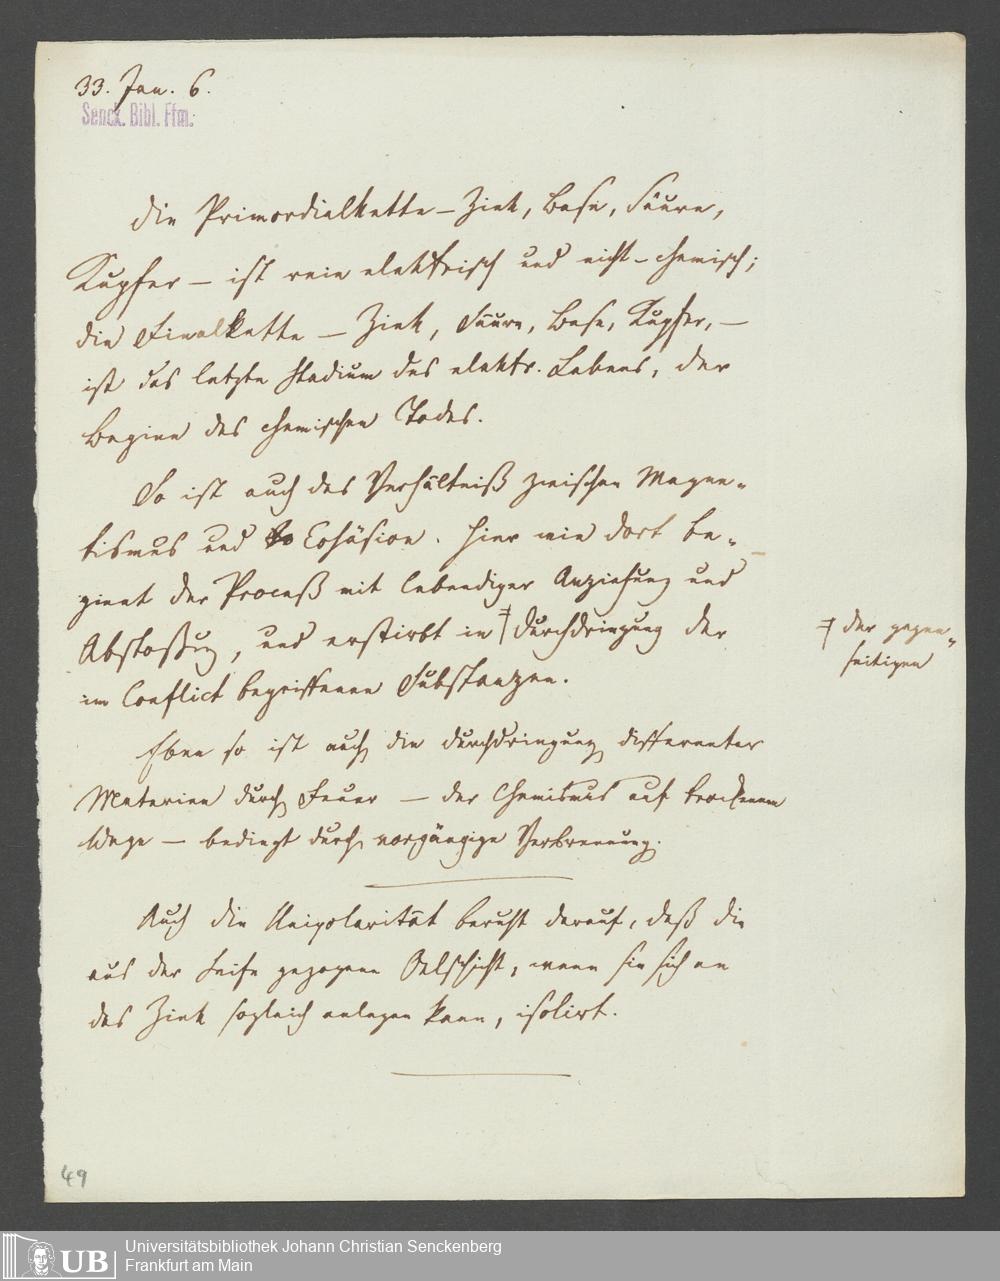 33. Jan. 6.
Senck. Bibl. Ffm.
Die Primordialkette – Zink, Base, Säure,
Kupfer – ist rein elektrisch und nicht-chemisch;
die Finalkette – Zink, Säure, Base, Kupfer, –
ist das letzte Stadium des elektr. Lebens, der
Beginn des chemischen Todes.
So ist auch das Verhältniß zwischen Magne-
tismus und Cohäsion. Hier wie dort be-
ginnt der Proceß mit lebendiger Anziehung und
Abstoßung, und erstirbt in ǂ Durchdringung der
ǂ der gegen-
seitigen
im Conflict begriffenen Substanzen.
Eben so ist auch die Durchdringung differenter
Materien durch Feuer – der Chemismus auf trockenem
Wege – bedingt durch vorgängige Verbrennung.
Auch die Unipolarität beruht darauf, daß die
aus der Seife gezogene Oelschicht, wenn sie sich an
das Zink sogleich anlegen kann, isolirt.
49
UB
Universitätsbibliothek Johann Christian Senckenberg
Frankfurt am Main